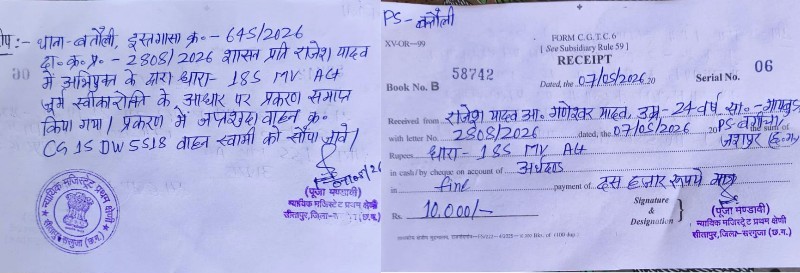 :- थाना-बतौली, इस्तगासा क्र०-645/2026
दा.क्र.प्र०-2808/2026 शासन प्रति राजेश यादव
में अभियुक्त के द्वारा धारा-185 MV Act
जुर्म स्वीकारोक्ति के आधार पर प्रकरण समाप्त
किया गया। प्रकरण में जप्तशुदा वाहन क्र०
CG 15 DW 5518 वाहन स्वामी को सौंपा जावे।
(पूजा मण्डावी)
न्यायिक मजिस्ट्रेट प्रथम श्रेणी
सीतापुर, जिला-सरगुजा (छ.ग.)
न्यायिक मजिस्ट्रेट प्रथम श्रेणी
सीतापुर-सरगुजा (छ.ग.)
PS-बतौली
XV-OR-99
FORM C.G.T.C. 6
[See Subsidiary Rule 59]
RECEIPT
Book No. B 58742
Dated, the 07/05/2026 20
Serial No. 06
Received from राजेश यादव आ. गणेश्वर यादव, उम्र-24 वर्ष सा.-
with letter No. 2808/2026 dated, the 07/05/2026 20 PS-बगीचा the sum of
जशपुर (छ.ग.)
Rupees धारा-185 MV Act
in cash/by cheque on account of अर्थदण्ड
in fine payment of दस हजार रूपये मात्र
Rs. 10,000/-
Signature
&
Designation
(पूजा मण्डावी)
न्यायिक मजिस्ट्रेट प्रथम श्रेणी
सीतापुर, जिला-सरगुजा (छ.ग.)